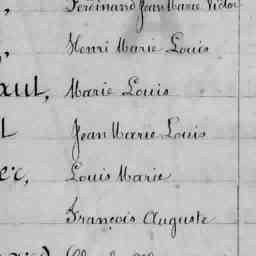 , Ferdinand Jean Marie Victor
, Henri Marie Louis
aul, Marie Louis
l Jean Marie Louis
er, Louis Marie
François Auguste